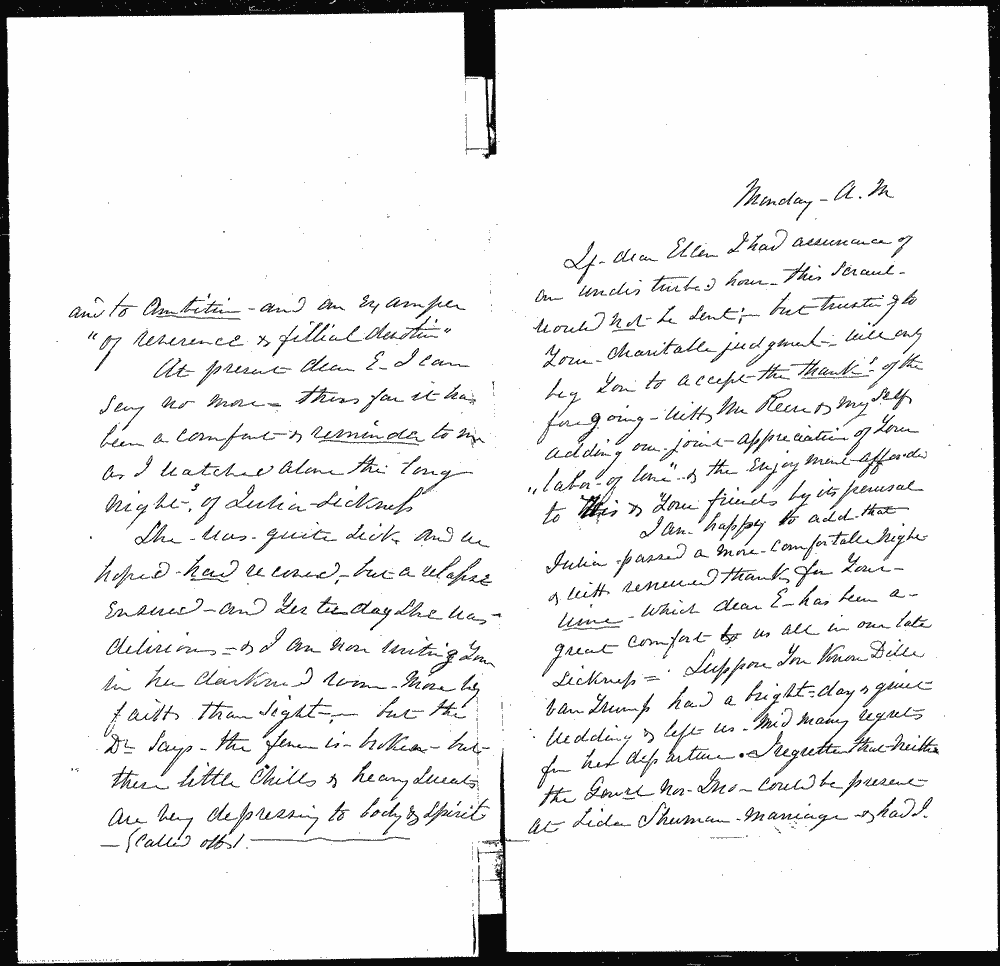 and to Ambition - and an example
"of reverence & fillial devotion"
At present dear E - I can
say no more - thus far it has
been a comfort & reminder to me
as I watched alone the long
night's of Julia - sickness
She was quite sick and we
hoped had recovered - but a relapse
ensued - and Yesterday She was -
delirious - & I am now writing You
in her darkened room - More by
faith than Sight - but the
Dr Says - the fever is broken - but
these little Chills & heavy Sweats
are very depressing to body & Spirit
- (Called off) -
Monday - A. M
If - dear Ellen I had assurance of
an undisturbed hour - this Scrawl -
would not be Sent; - but trusting to
Your - Charitable judgment - will only
beg You to accept the thank's of the
foregoing - with Mr Reese & my Self
adding our joint - appreciation of Your
"labor - of love" & the Enjoyment afforded
to this & Your friends by its perusal
I am happy to add - that
Julia - passed a more - comfortable night
& with renewed thanks for Your -
- which dear E - has been a -
great comfort to us all in our late
Sickness - Suppose You Know Dille
had a bright - day & quiet
Wedding & left us - mid many regrets
for her departure. I regretted that Neither
the nor - Jno - could be present
at Lida Sherman - marriage - & had I.